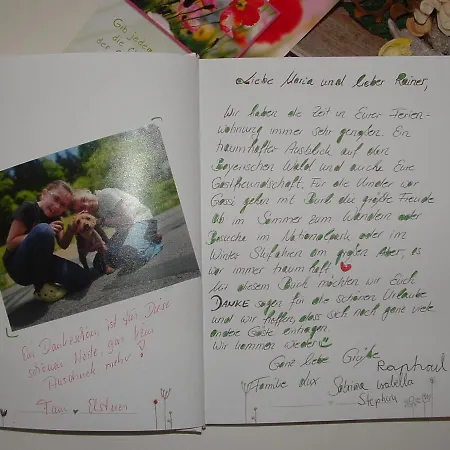 Gib jedem
die
der
Ein Dankeschön ist für Diese
schönen Worte, gar kein
Ausdruck mehr!
Fam.
Liebe Maria und lieber Rainer,
Wir haben die Zeit in Eurer Ferien-
wohnung immer sehr genossen. Ein
traumhafter Ausblick auf den
Bayerischen Wald und auch Eure
Gastfreundschaft. Für die Kinder war
Gassi gehen mit die große Freude
Ob im Sommer zum Wandern oder
Besuche im Nationalpark oder im
Winter Skifahren am großen Arber, es
war immer traumhaft
Mit diesem Buch möchten wir Euch
DANKE sagen für die schönen Urlaube
und wir hoffen, dass sich noch ganz viele
andere Gäste eintragen.
Wir kommen wieder
Ganz liebe Grüße
Raphael
Familie Sabrina Isabella
Stephan